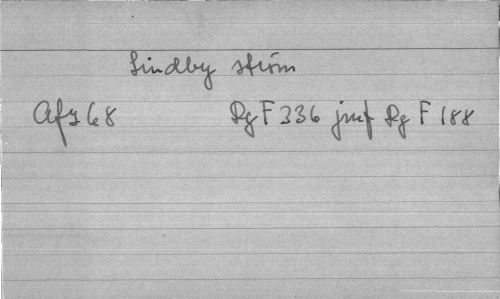 Lindby ström
Afz 68 Rg F 336 jmf Rg F 188